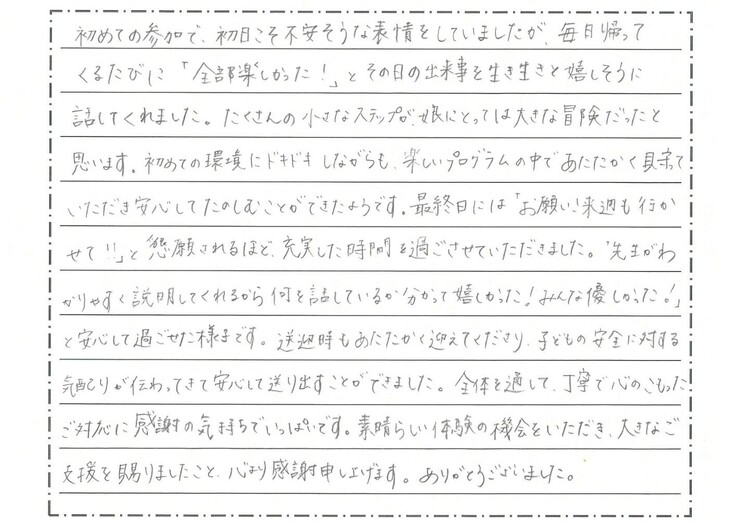 初めての参加で、初日こそ不安そうな表情をしていましたが、毎日帰って
くるたびに「全部楽しかった！」とその日の出来事を生き生きと嬉しそうに
話してくれました。たくさんの小さなステップが、娘にとっては大きな冒険だったと
思います。初めての環境にドキドキしながらも、楽しいプログラムの中であたたかく見守って
いただき安心してたのしむことができたようです。最終日には「お願い！来週も行か
せて！！」と懇願されるほど、充実した時間を過ごさせていただきました。「先生がわ
かりやすく説明してくれるから何を話しているか分かって嬉しかった！みんな優しかった！」
と安心して過ごせた様子です。送迎時もあたたかく迎えてくださり、子どもの安全に対する
気配りが伝わってきて安心して送り出すことができました。全体を通して、丁寧で心のこもった
ご対応に感謝の気持ちでいっぱいです。素晴らしい体験の機会をいただき、大きなご
支援を賜りましたこと、心より感謝申し上げます。ありがとうございました。